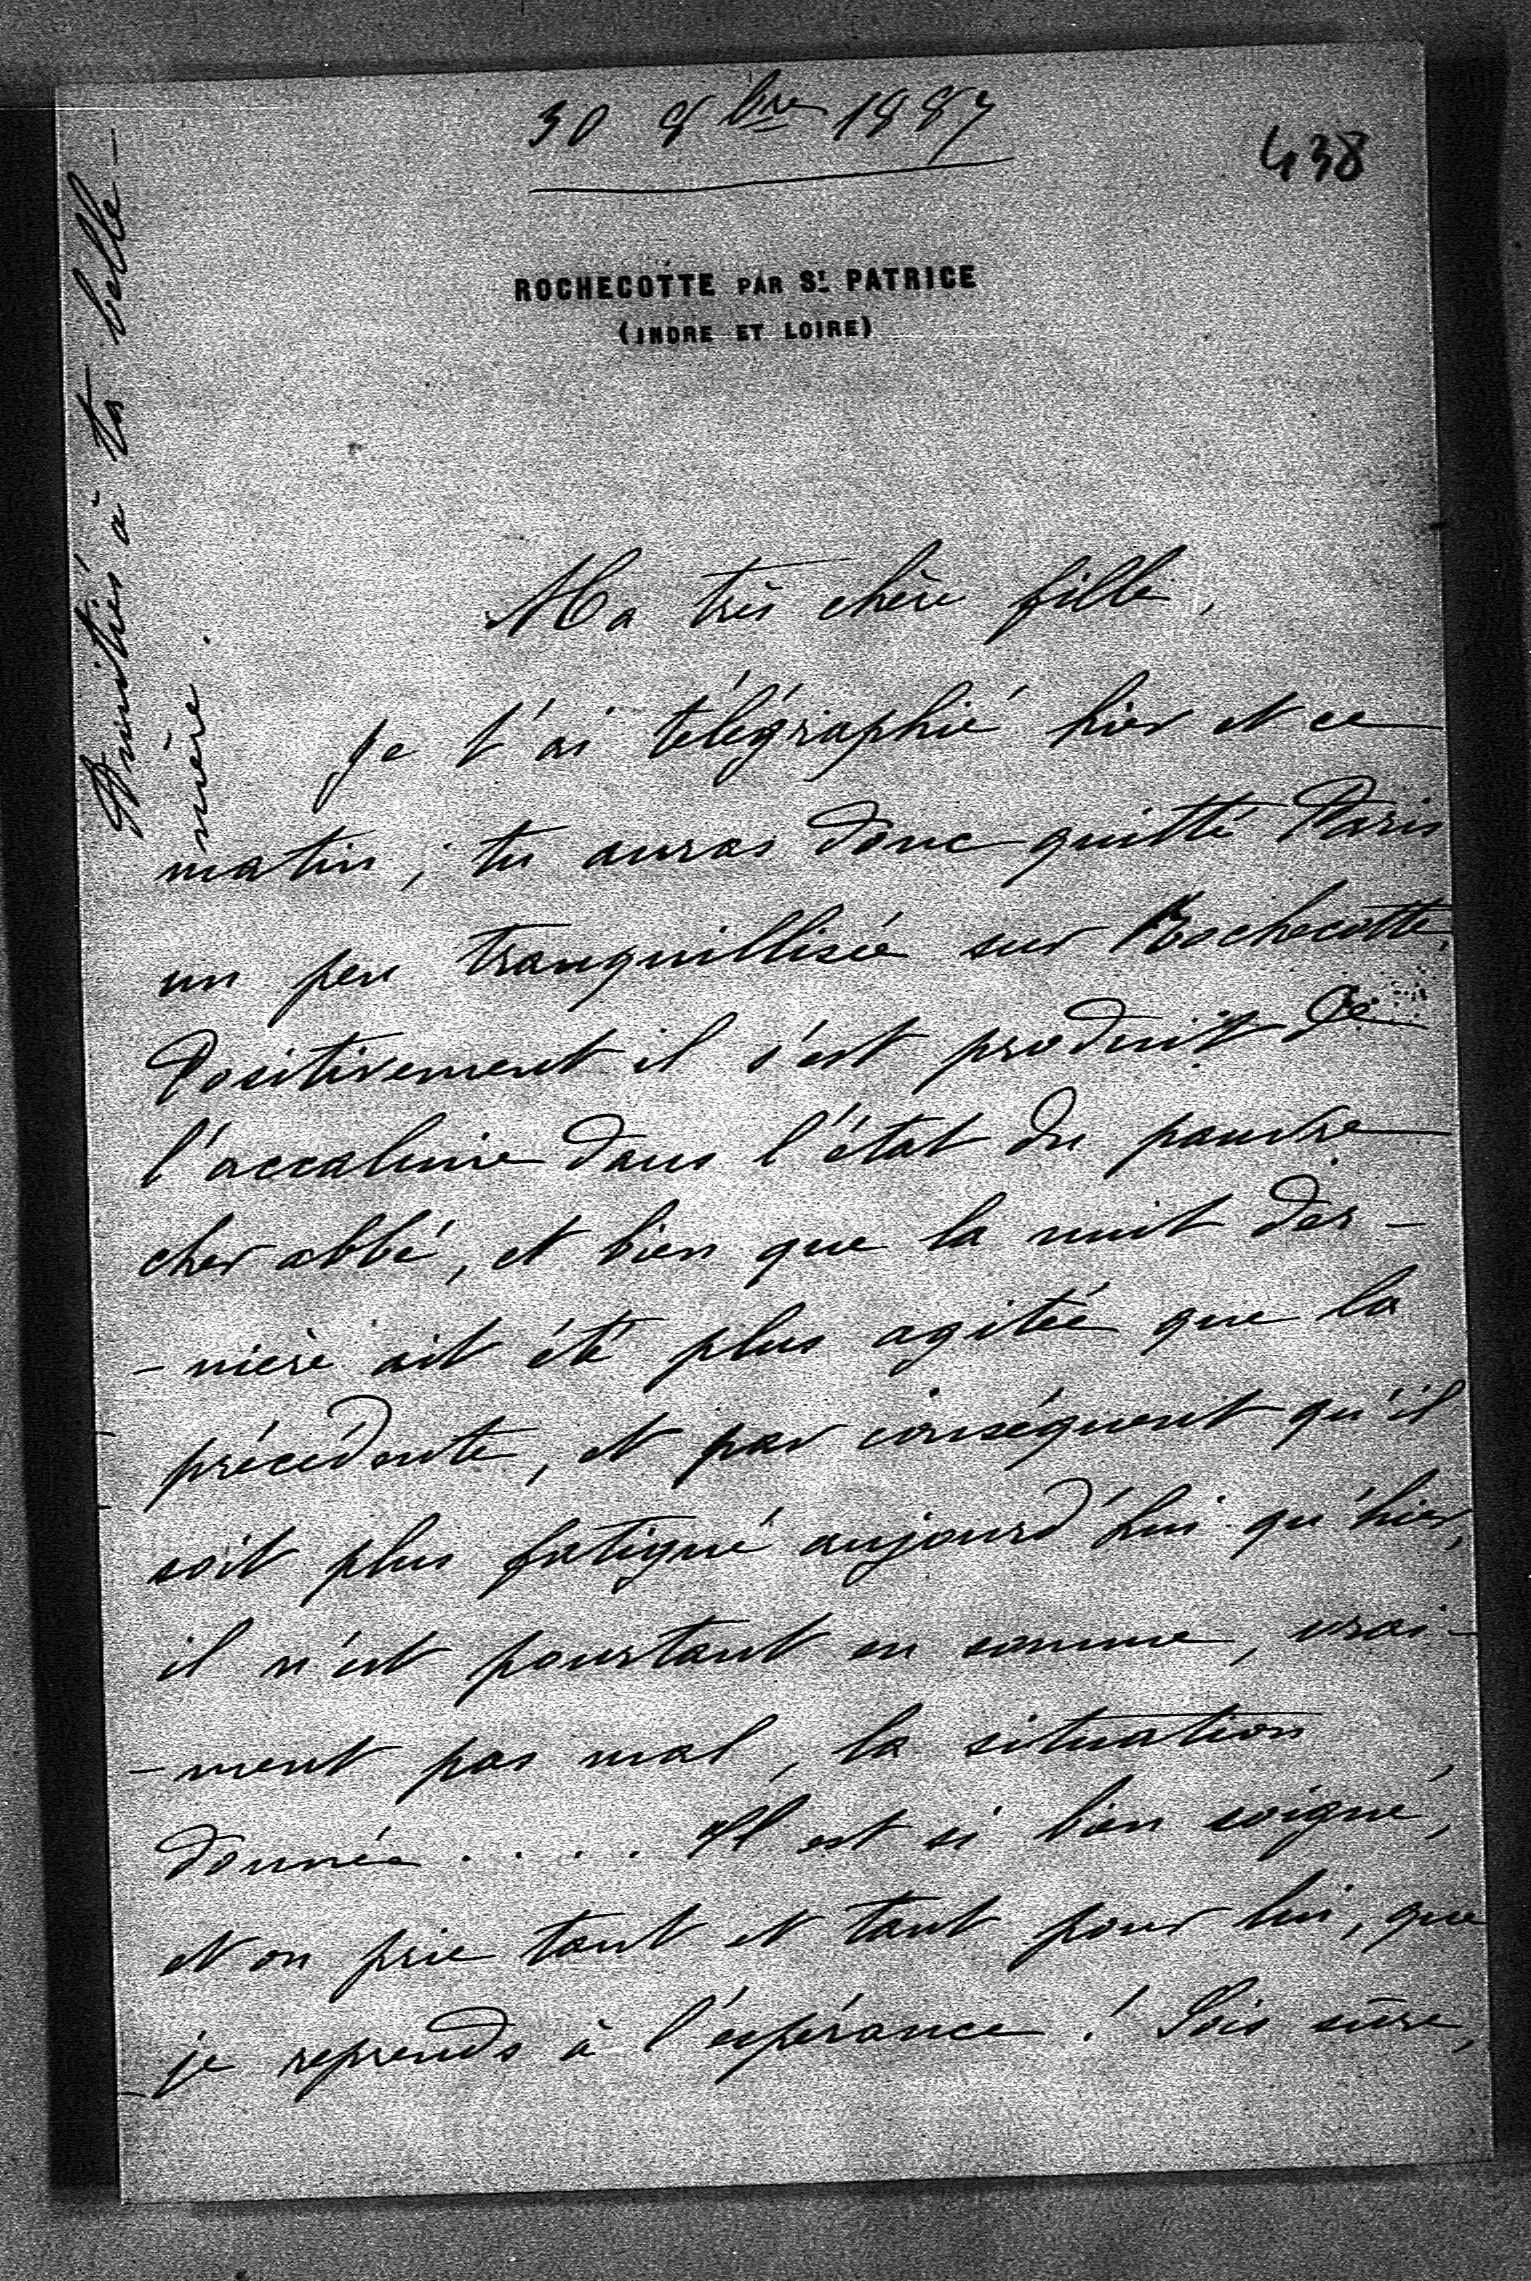 30 8bre 1887
438
ROCHECOTTE PAR ST PATRICE
(INDRE ET LOIRE)
Ma très chère fille,
Je t'ai télégraphié hier et ce
matin ; tu auras donc quitté Paris
un peu tranquillisée sur Rochecotte.
Positivement il s'est produit de
l'accalmie dans l'état du pauvre
cher abbé, et bien que la nuit der-
-nière ait été plus agitée que la
précédente, et par conséquent qu'il
soit plus fatigué aujourd'hui qu'hier,
il n'est pourtant en somme, vrai-
-ment pas mal, la situation
donnée ..... Il est si bien soigné,
et on prie tant et tant pour lui, que
je reprends à l'espérance ! Sois sûre,
Amitiés à ta belle-
mère.